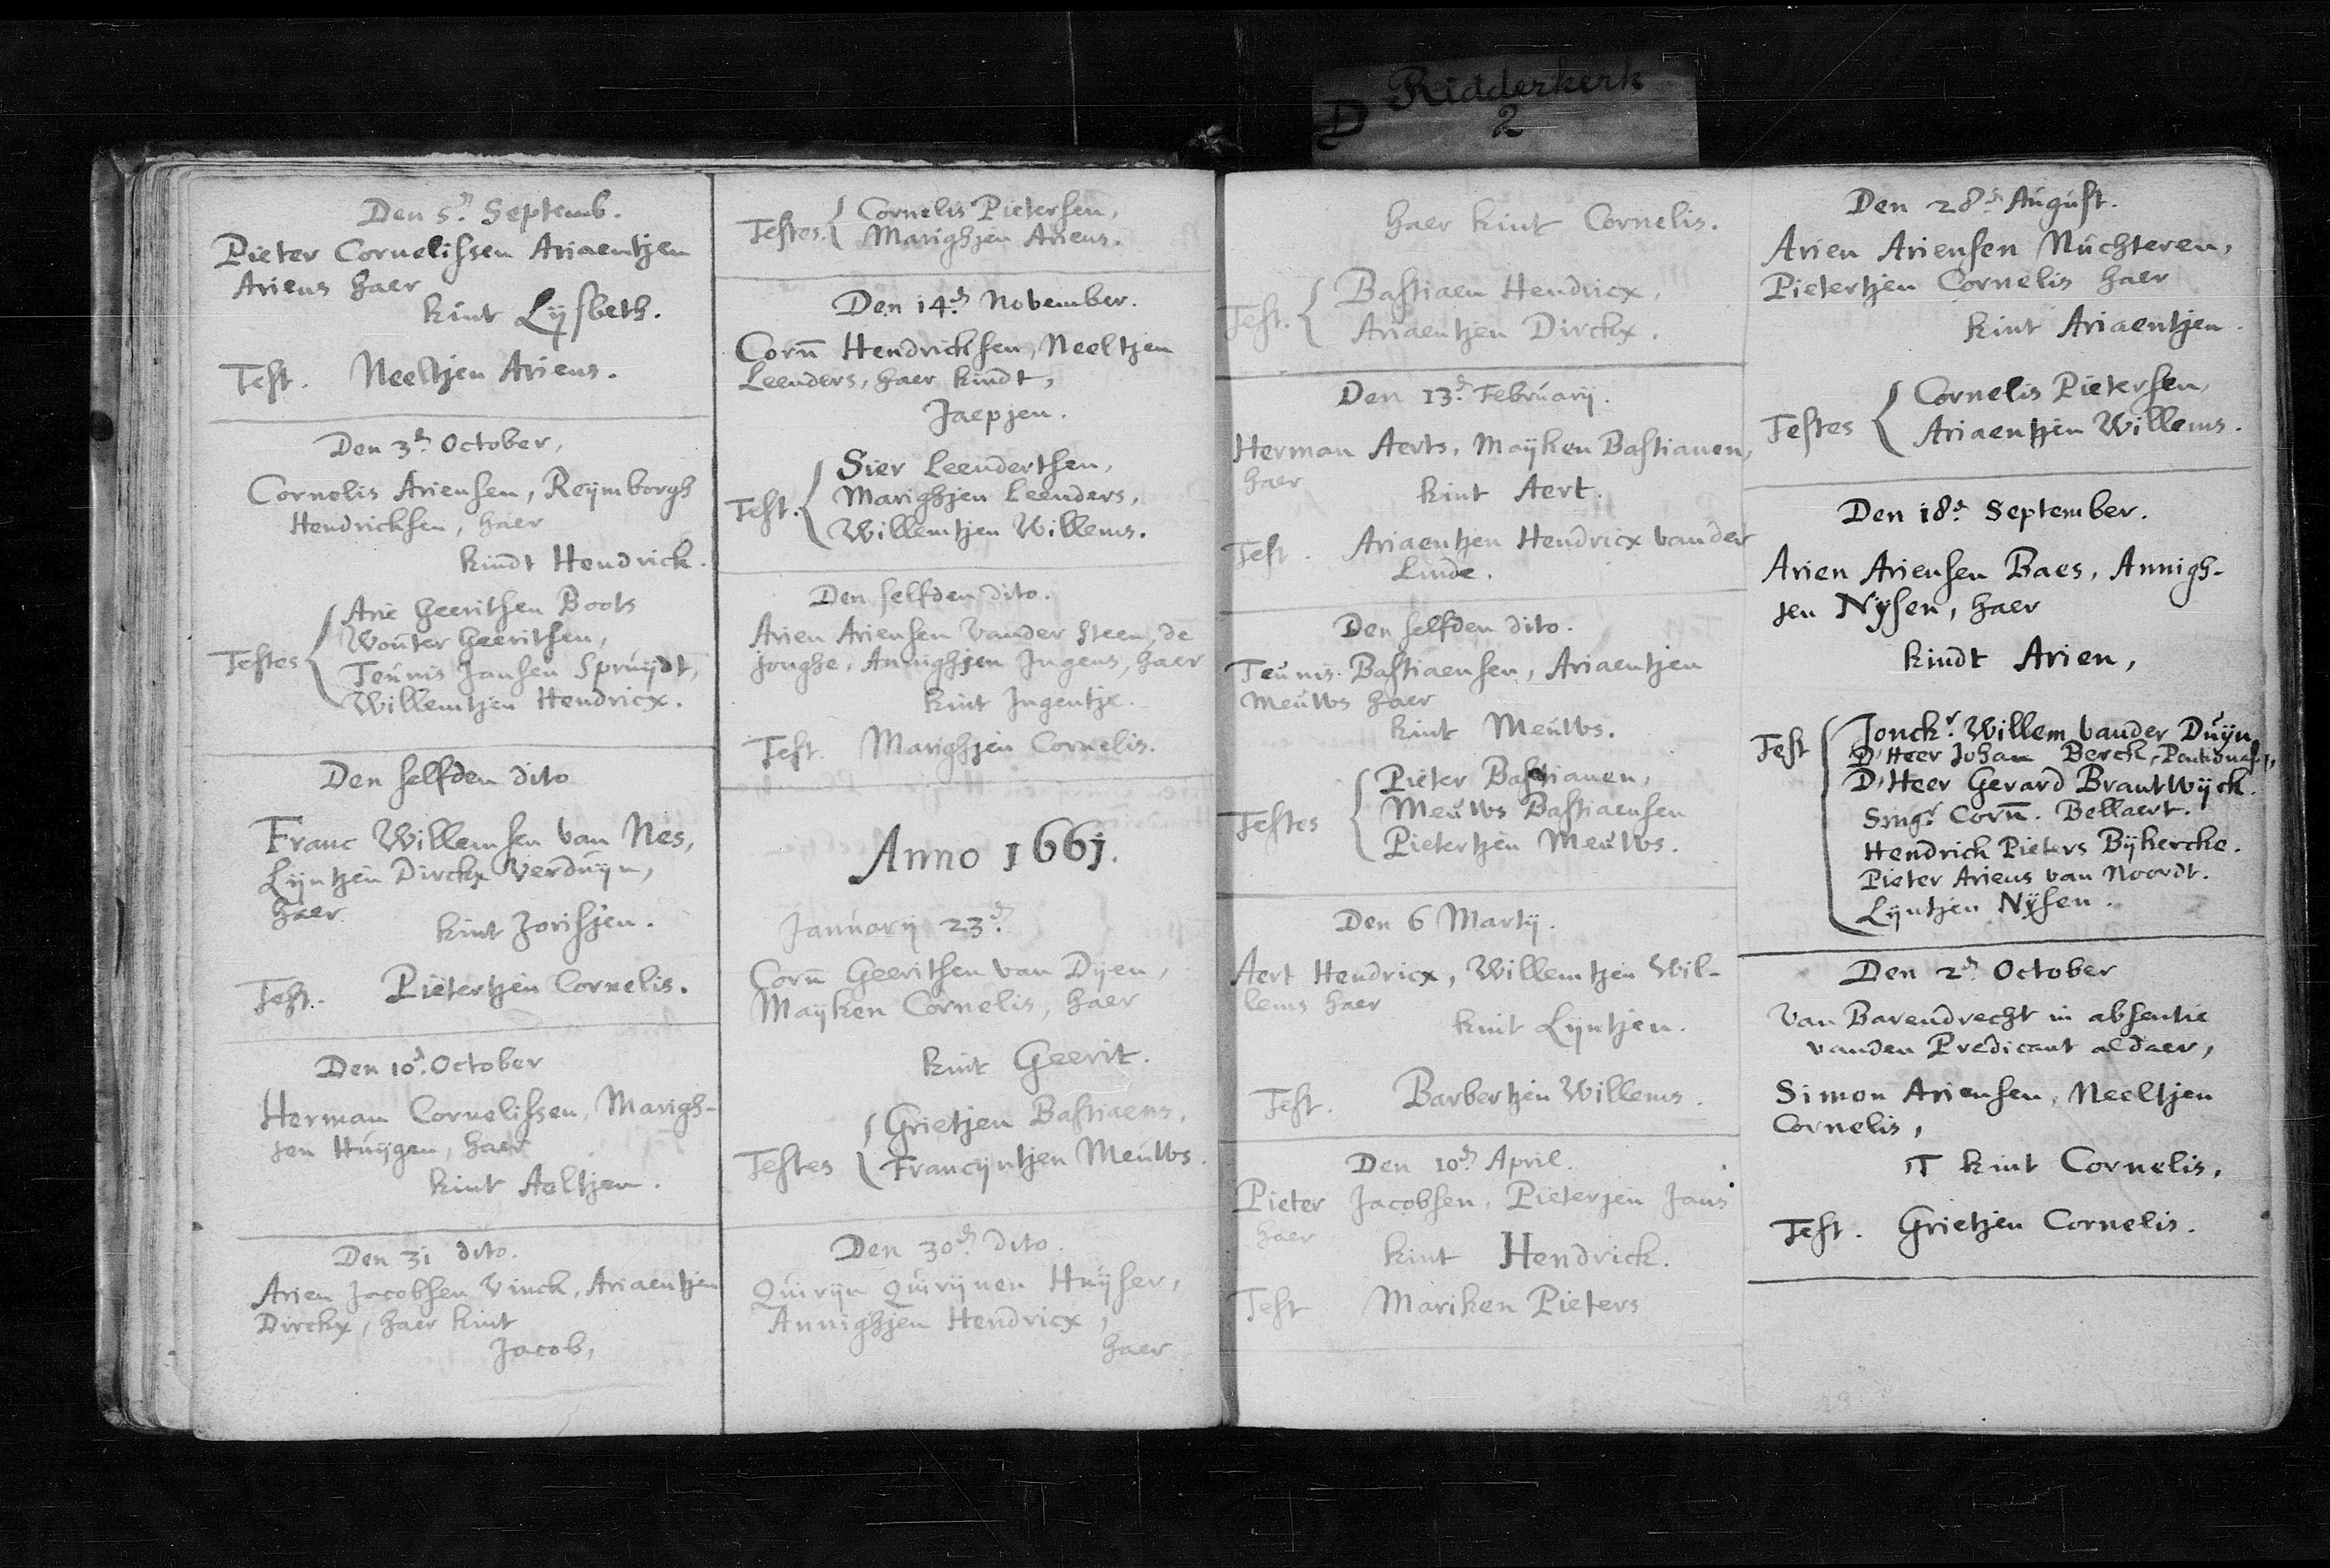 D Ridderkerk
2
Den 5.n Septemb.
Pieter Cornelissen Ariaentjen
Ariens haer
kint Lijsbeth.
Test. Neeltjen Ariens.
Den 3.n October,
Cornelis Ariensen, Reijmborgh
Hendricksen, haer
kindt Hendrick.
Arie Geeritsen Boots
Wouter Geeritsen,
Testes Teunis Jansen Spruijdt,
Willemtjen Hendricx.
Den selfden dito
Franc Willemsen van Nes,
Lijntjen Dirckx Verduijn,
haer
kint Jorisjen.
Test. Pietertjen Cornelis.
Den 10.n October
Herman Cornelissen, Marigh-
jen Huijgen, haer
kint Aeltjen.
Den 31 dito.
Arien Jacobsen Vinck, Ariaentjen
Dirckx, haer kint
Jacob,
Testes. Cornelis Pietersen,
Marighjen Ariens.
Den 14.n November.
Corn Hendricksen, Neeltjen
Leenders, haer kindt,
Jaepjen.
Sier Leendertsen,
Test. Marighjen Leenders,
Willemtjen Willems.
Den selfden dito.
Arien Ariensen vander Steen, de
jonghe, Annighjen Ingens, haer
kint Ingentje.
Test. Marighjen Cornelis.
Anno 1661.
Januarij 23.n
Corn Geeritsen van Dijen,
Maijken Cornelis, haer
kint Geerit.
Grietjen Bastiaens,
Testes Francijntjen Meuws.
Den 30.n dito.
Quirijn Quirijnen Huijser,
Annighjen Hendricx,
haer
haer kint Cornelis.
Test. Bastiaen Hendricx,
Ariaentjen Dirckx.
Den 13.n Februarij.
Herman Aerts, Maijken Bastianen,
haer
kint Aert.
Test. Ariaentjen Hendricx vander
Linde.
Den selfden dito.
Teunis Bastiaensen, Ariaentjen
Meuws haer
kint Meuws.
Pieter Bastianen,
Testes Meuws Bastiaensen
Pietertjen Meuws.
Den 6 Martij.
Aert Hendricx, Willemtjen Wil-
lems haer
kint Lijntjen.
Test. Barbertjen Willems.
Den 10.n April.
Pieter Jacobsen, Pieterjen Jans
haer
kint Hendrick.
Test Mariken Pieters
Den 28.n August.
Arien Ariensen Nuchteren,
Pietertjen Cornelis haer
kint Ariaentjen.
Testes Cornelis Pietersen,
Ariaentjen Willems.
Den 18.n September.
Arien Ariensen Baes, Annigh-
jen Nijsen, haer
kindt Arien,
Test Jonck.r Willem vander Duijn,
D'Heer Johan Berck,
D'Heer Gerard Brantwijck.
Sing.r Corn. Bellaert.
Hendrick Pieters Bijkercke.
Pieter Ariens van Noordt.
Lijntjen Nijsen.
Den 2.n October
Van Barendrecht in absentie
vanden Predicant aldaer,
Simon Ariensen, Neeltjen
Cornelis,
'T kint Cornelis,
Test. Grietjen Cornelis.